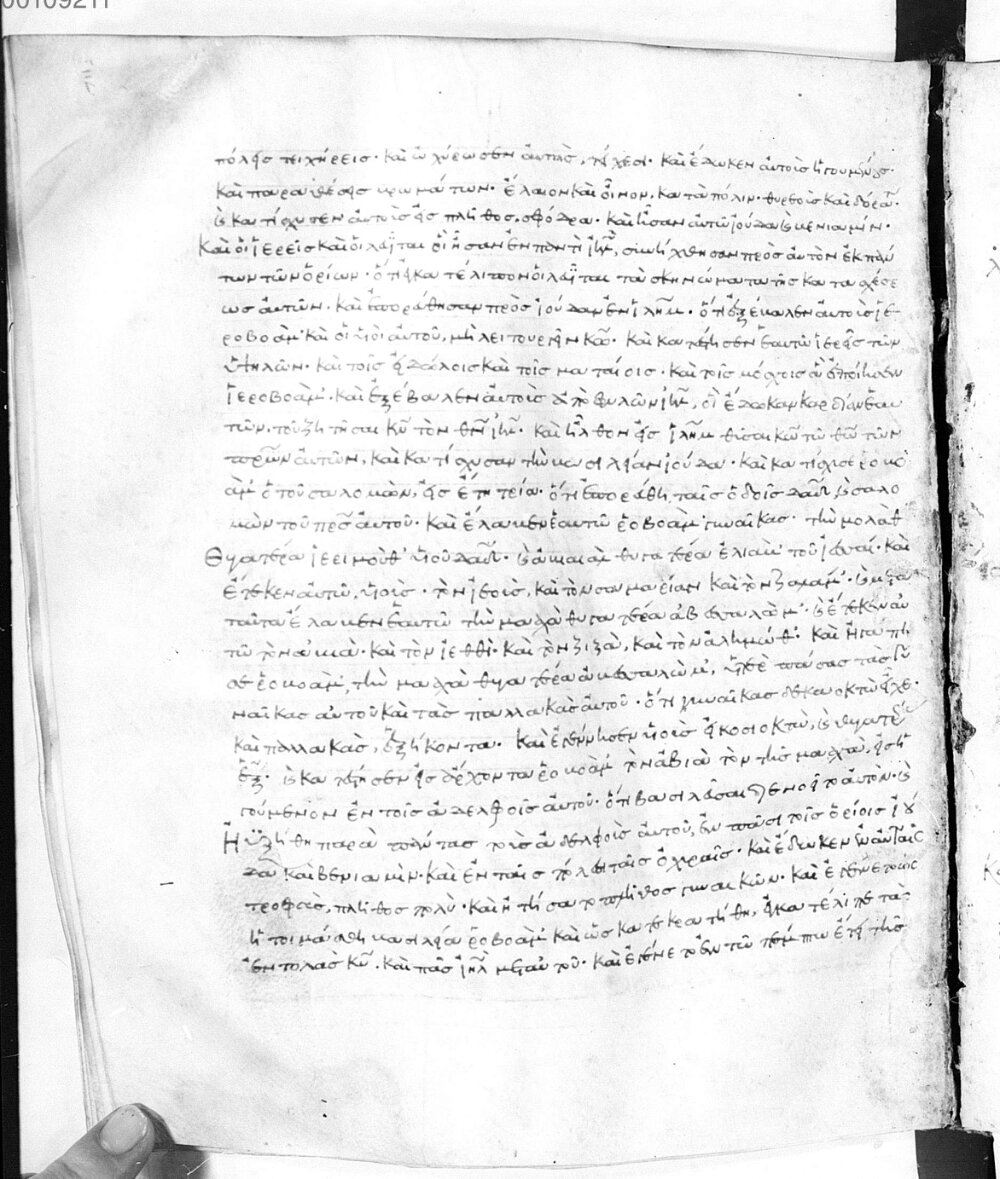 00109211
πόλεις τειχήρεις· καὶ ὠχύρωσεν αὐτὰς τείχεσι· καὶ ἔδωκεν αὐτοῖς ἡγουμένους·
καὶ παραθέσεις βρωμάτων· ἔλαιον καὶ οἶνον, κατὰ πόλιν· θυρεοὺς καὶ δόρατ
καὶ κατίσχυσεν αὐτοὺς εἰς πλῆθος, σφόδρα· καὶ ἦσαν αὐτῶ ἰούδας καὶ βενιαμίν·
Καὶ οἱ ἱερεῖς καὶ οἱ λευῗται οἳ ἦσαν ἐν παντὶ ἰηλ, συνήχθησαν πρὸς αὐτὸν ἐκ πάν
των τῶν ὁρίων· ὅτι ἐγκατέλιπον οἱ λευῗται τὰ σκηνώματα τῆς κατασχέσε
ως αὐτῶν· καὶ ἐπορεύθησαν πρὸς ἰούδαν ἐν ἰλημ· ὅτι ἐξέβαλεν αὐτοὺς ἱε
ροβοὰμ καὶ οἱ υἱοὶ αὐτοῦ, μὴ λειτουργεῖν κω· καὶ κατέστησεν ἑαυτῶ ἱερεῖς τῶν
ὑψηλῶν· καὶ τοῖς εἰδώλοις καὶ τοῖς ματαίοις· καὶ τοῖς μόσχοις ἃ ἐποίησεν
ἱεροβοάμ· καὶ ἐξέβαλεν αὐτοὺς ἀπὸ φυλῶν ἰηλ, οἳ ἔδωκαν καρδίαν ἑαυ
τῶν, τοῦ ζητῆσαι κν τὸν θν ἰηλ· καὶ ἦλθον εἰς ἰλημ θῦσαι κω τῶ θω τῶν
πρων αὐτῶν, καὶ κατίσχυσαν τὴν βασιλείαν ἰούδα· καὶ κατίσχυσε ροβο
ὰμ ὁ τοῦ σαλομὼν, εἰς ἔτη τρία· ὅτι ἐπορεύθη ταῖς ὁδοῖς δαδ καὶ σαλο
μὼν τοῦ πρς αὐτοῦ· καὶ ἔλαβεν ἑαυτῶ ροβοὰμ γυναῖκας· τὴν μολὰθ
Θυγατέρα ἱεριμοὺθ υἱοῦ δαδ· καὶ ἀβιαιὰμ θυγατέρα ἐλιὰμ τοῦ ἰεσσαί· καὶ
ἔτεκεν αὐτῶ υἱοὺς· τὸν ἰεοὺς, καὶ τὸν σαμαρίαν καὶ τὸν ζαλάμ· καὶ μετὰ
ταῦτα ἔλαβεν ἑαυτῶ τὴν μααχὰ θυγατέρα ἀβεσσαλώμ· καὶ ἔτεκεν αὐ
τῶ τὸν ἀβιὰ· καὶ τὸν ἰεθθὶ· καὶ τὸν ζιζὰ, καὶ τὸν σαλημώθ· καὶ ἠγάπη
σε ροβοὰμ, τὴν μααχὰ θυγατέρα ἀβεσσαλώμ, ὑπὲρ πάσας τὰς γυ
ναῖκας αὐτοῦ καὶ τὰς παλλακὰς αὐτοῦ· ὅτι γυναῖκας δεκαοκτὼ εἶχε·
καὶ παλλακὰς, ἑξήκοντα· καὶ ἐγέννησεν υἱοὺς εἰκοσιοκτὼ, καὶ θυγατέρ
ἑξ· καὶ κατέστησεν εἰς ἄρχοντα ροβοὰμ τὸν ἀβιὰ τὸν τῆς μααχὰ, εἰς ἡ
γούμενον ἐν τοῖς ἀδελφοῖς αὐτοῦ· ὅτι βασιλεῦσαι διενοεῖτο αὐτόν· καὶ
Ηὐξήθη παρὰ πάντας τοὺς ἀδελφοὺς αὐτοῦ, ἐν πᾶσι τοῖς ὁρίοις ἰού
δα καὶ βενιαμίν· καὶ ἐν ταῖς πόλεσι ταῖς ὀχυραῖς· καὶ ἔδωκεν ἐν αὐταῖς
τροφὰς, πλῆθος πολὺ· καὶ ἠτήσατο πλῆθος γυναικῶν· καὶ ἐγένετο ὡς
ἡτοιμάσθη βασιλεία ροβοὰμ καὶ ὡς κατεκρατήθη, ἐγκατέλιπε τὰς
ἐντολὰς κυ· καὶ πᾶς ἰηλ μεταυτοῦ· καὶ ἐγένετο ἐν τῶ πέμπτω ἔτει τῆς